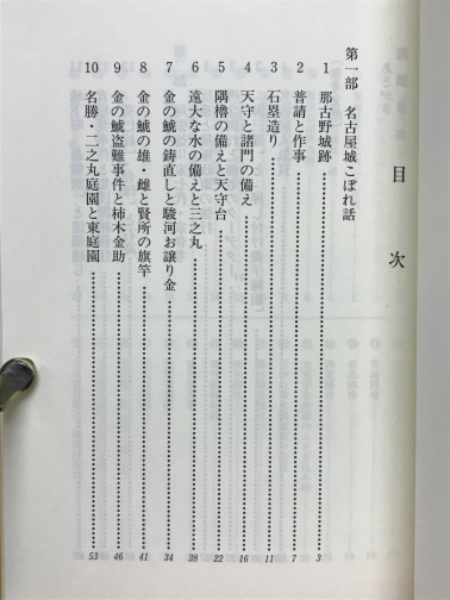 目次
第一部 名古屋城こぼれ話
1 那古野城跡 3
2 普請と作事 7
3 石塁造り 11
4 天守と諸門の備え 16
5 隅櫓の備えと天守台 22
6 遠大な水の備えと三之丸 28
7 金の鯱の鋳直しと駿河お譲り金 34
8 金の鯱の雄・雌と賢所の旗竿 41
9 金の鯱盗難事件と柿木金助 46
10 名勝・二之丸庭園と東庭園 53